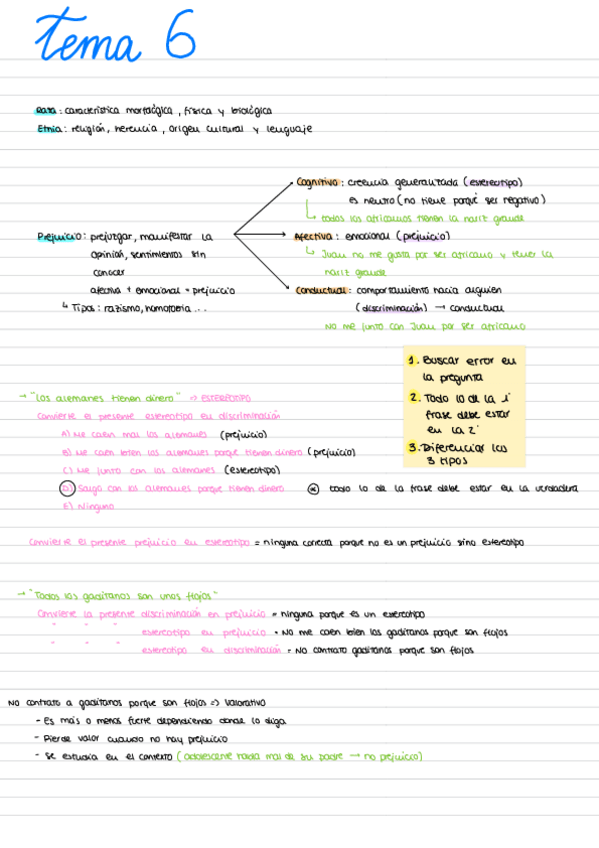 Tema 6
Raza: característica morfológica, física y biológica
Etnia: religión, herencia, origen cultural y lenguaje
Cognitivo: creencia generalizada (estereotipo)
es neutro (no tiene porqué ser negativo)
↳ todos los africanos tienen la nariz grande
Prejuicio: prejuzgar, manifestar la
opinión, sentimientos sin
conocer
afectiva + emocional = prejuicio
↳ Tipos: razismo, homofobia...
Afectiva: emocional (prejuicio)
↳ Juan no me gusta por ser africano y tener la
nariz grande
Conductual: comportamiento hacia alguien
(discriminación) → conductual
No me junto con Juan por ser africano
1. Buscar error en
la pregunta
2. Todo lo de la 1ª
frase debe estar
en la 2ª
3. Diferenciar los
3 tipos
→ "Los alemanes tienen dinero" => ESTEREOTIPO
Convierte el presente estereotipo en discriminación
A) Me caen mal los alemanes (prejuicio)
B) Me caen bien los alemanes porque tienen dinero (prejuicio)
C) Me junto con los alemanes (estereotipo)
D) Salgo con los alemanes porque tienen dinero * todo lo de la frase debe estar en la verdadera
E) Ninguno
Convierte el presente prejuicio en estereotipo = ninguna correcta porque no es un prejuicio sino estereotipo
→ "Todos los gaditanos son unos flojos"
Convierte la presente discriminación en prejuicio = ninguna porque es un estereotipo
" " " estereotipo en prejuicio = No me caen bien los gaditanos porque son flojos
" " " estereotipo en discriminación = No contrato gaditanos porque son flojos
No contrato a gaditanos porque son flojos => valorativo
- Es más o menos fuerte dependiendo donde lo diga
- Pierde valor cuando no hay prejuicio
- Se estudia en el contexto (adolescente habla mal de su padre → no prejuicio)